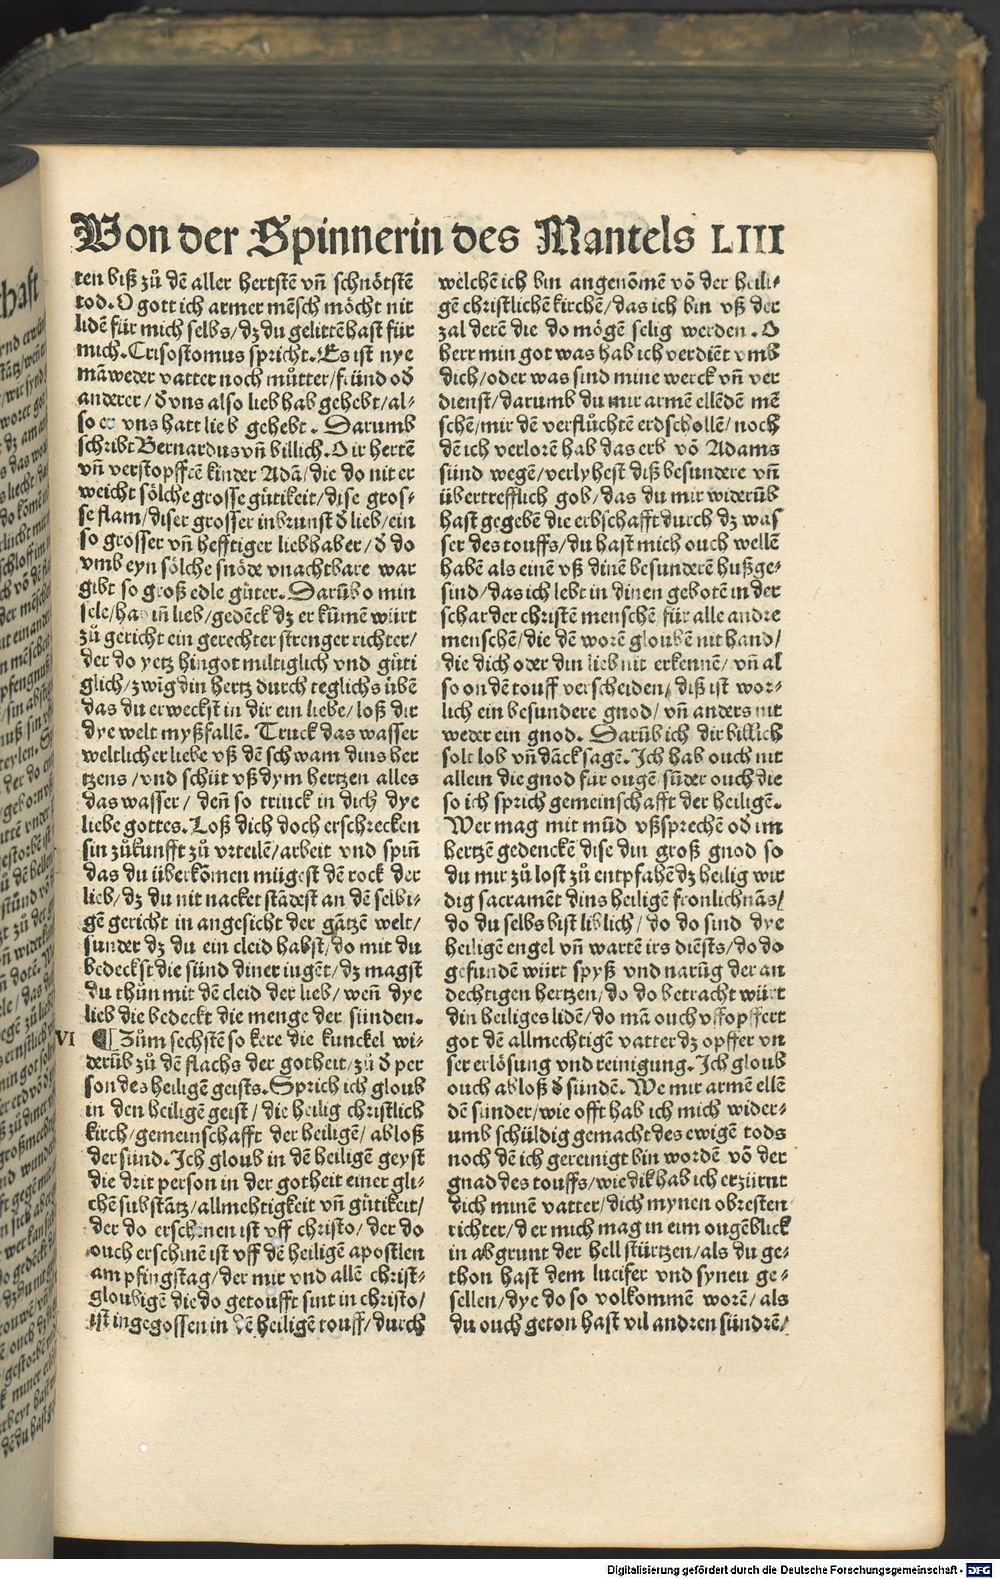 Von der Spinnerin des Mantels LIII
ten biß zů dē aller hertstē vñ schnötstē
tod. O gott ich armer mēsch möcht nit
lidē für mich selbs/ dz du gelittē hast für
mich. Crisostomus spricht. Es ist nye
mā weder vatter noch můtter/ fründ od
anderer/ d̄ vns also lieb hab gehebt/ al⸗
so er vns hatt lieb gehebt. Darumb
schribt Bernardus vñ billich. O ir hertē
vñ verstopfftē kinder Adā/ die do nit er
weicht sölche grosse gütikeit/ dise gros⸗
se flam/ diser grosser inbrunst d̄ lieb/ ein
so grosser vñ hefftiger liebhaber/ d̄ do
vmb eyn sölche snöde vnachtbare war
gibt so groß edle güter. Darūb o min
sele/ hab in lieb/ gedēck dz er kūmē würt
zů gericht ein gerechter strenger richter/
der do yetz hingot miltiglich vnd güti
glich/ zwīg din hertz durch teglichs übē
das du erweckst in dir ein liebe/ loß dir
dye welt myßfallē. Truck das wasser
weltlicher liebe vß dē schwam dins her
tzens/ vnd schüt vß dym hertzen alles
das wasser/ deñ so trinck in dich dye
liebe gottes. Loß dich doch erschrecken
sin zůkunfft zů vrteilē/ arbeit vnd spiñ
das du überkōmen mügest dē rock der
lieb/ dz du nit nacket stādest an dē selbi⸗
gē gericht in angesicht der gātzē welt/
sunder dz du ein cleid habst/ do mit du
bedeckst die sünd diner iugēt/ dz magst
du thůn mit dē cleid der lieb/ weñ dye
lieb die bedeckt die menge der sünden.
VI ¶ Zům sechstē so kere die kunckel wi⸗
derūb zů dē flachs der gotheit/ zů d̄ per
son des heiligē geists. Sprich ich gloub
in den heiligē geist/ die heilig christlich
kirch/ gemeinschafft der heiligē/ abloß
der sünd. Ich gloub in dē heiligē geyst
die drit person in der gotheit einer gli⸗
chē substātz/ allmehtigkeit vñ gütikeit/
der do erschinen ist vff christo/ der do
ouch erschinē ist vff dē heiligē apostlen
am pfingstag/ der mir vnd allē christ⸗
gloubigē die do getoufft sint in christo/
ist ingegossen in dē heiligē touff/ durch
welchē ich bin angenōmē vō der heili⸗
gē christlichē kirchē/ das ich bin vß der
zal derē die do mögē selig werden. O
herr min got was hab ich verdiēt vmb
dich/ oder was sind mine werck vñ ver
dienst/ darumb du mir armē ellēdē mē
schē/ mir dē verflůchtē erdschollē/ noch
dē ich verlorē hab das erb vō Adams
sünd wegē/ verlyhest diß besundere vñ
übertrefflich gob/ das du mir widerūb
hast gegebē die erbschafft durch dz was
ser des touffs/ du hast mich ouch wellē
habē als einē vß dinē besunderē hußge⸗
sind/ das ich lebt in dinen gebotē in der
schar der christē menschē für alle andre
menschē/ die dē worē gloubē nit hand/
die dich oder din lieb nit erkennē/ vñ al
so on dē touff verscheiden/ diß ist wor⸗
lich ein besundere gnod/ vñ anders nit
weder ein gnod. Darūb ich dir billich
solt lob vñ dāck sagē. Ich hab ouch nit
allein die gnod für ougē sūder ouch die
so ich sprich gemeinschafft der heiligē.
Wer mag mit mūd vßsprechē od im
hertzē gedenckē dise din groß gnod so
du mir zů lost zů entpfahē dz heilig wir
dig sacramēt dins heiligē fronlichnās/
do du selbs bist liblich/ do do sind dye
heiligē engel vñ wartē irs diēsts/ do do
gefundē würt spyß vnd narūg der an
dechtigen hertzen/ do do betracht würt
din heiliges lidē/ do mā ouch vffopffert
got dē allmechtigē vatter dz opffer vn
ser erlösung vnd reinigung. Ich gloub
ouch abloß d̄ sündē. We mir armē ellē
dē sünder/ wie offt hab ich mich wider⸗
umb schüldig gemacht des ewigē tods
noch dē ich gereinigt bin wordē vō der
gnad des touffs/ wie dik hab ich erzürnt
dich minē vatter/ dich mynen obresten
richter/ der mich mag in eim ougēblick
in abgrunt der hell stürtzen/ als du ge⸗
thon hast dem lucifer vnd synen ge⸗
sellen/ dye do so volkommē worē/ als
du ouch geton hast vil andren sündrē/
Digitalisierung gefördert durch die Deutsche Forschungsgemeinschaft - DFG